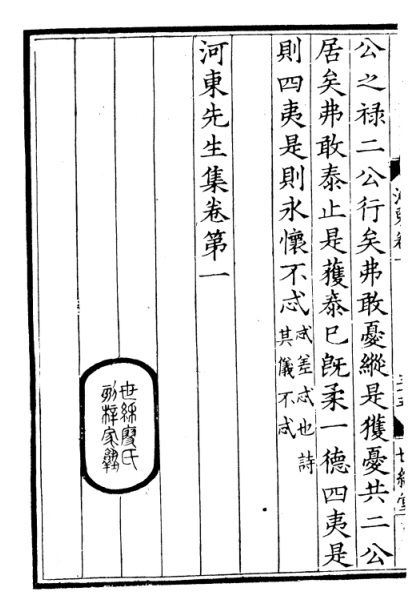 公之祿二公行矣弗敢憂縱是獲憂共二公
居矣弗敢泰止是獲泰已旣柔一德四夷是
則四夷是則永懷不忒
忒差忒也詩
其儀不忒
河東先生集卷第一
世綵廖氏
刻梓家塾